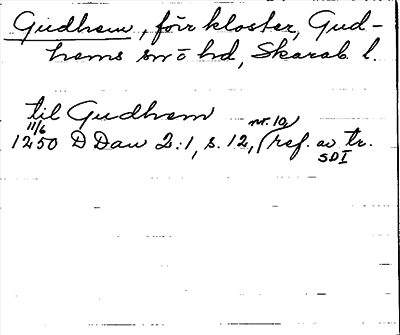 Gudhem, förr kloster, Gud-
hems sn o hd, Skarab. l.
til Gudhem
11/6 nr. 10
1250 D Dan 2:1, s. 12, (ref. av tr.
SD I